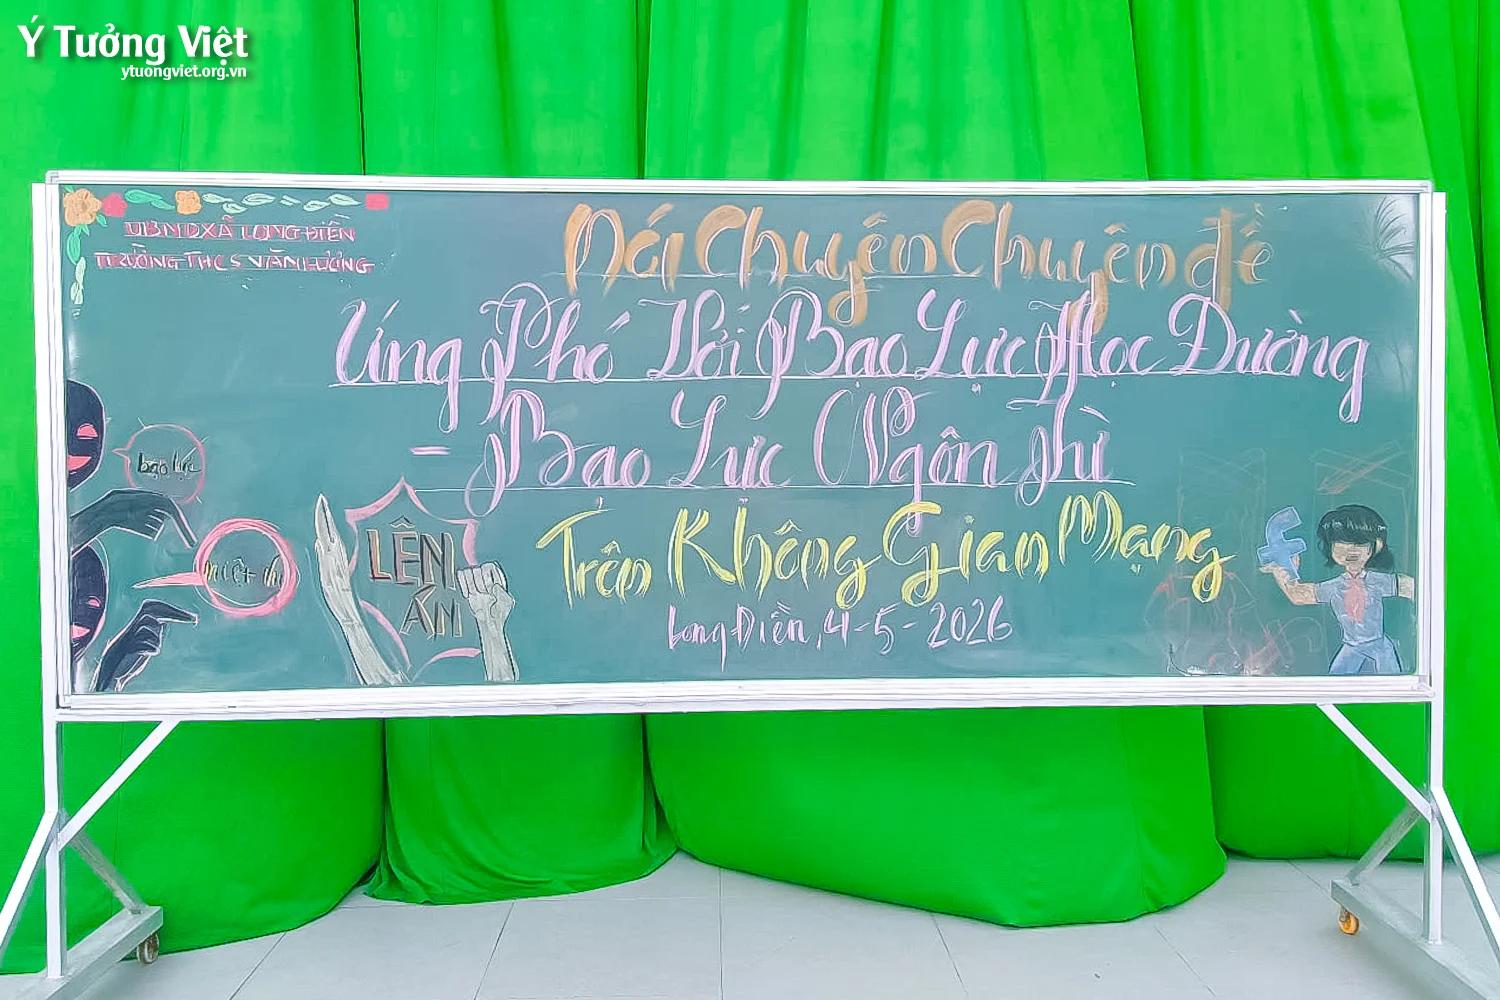 Ý Tưởng Việt
ytuongviet.org.vn
UBND XÃ LONG ĐIỀN
TRƯỜNG THCS VĂN LƯƠNG
Nói Chuyện Chuyên đề
Ứng Phó Với Bạo Lực Học Đường
- Bạo Lực Ngôn Từ
Trên Không Gian Mạng
Long Điền, 4-5-2026
bạo lực
miệt thị
LÊN
ÁN